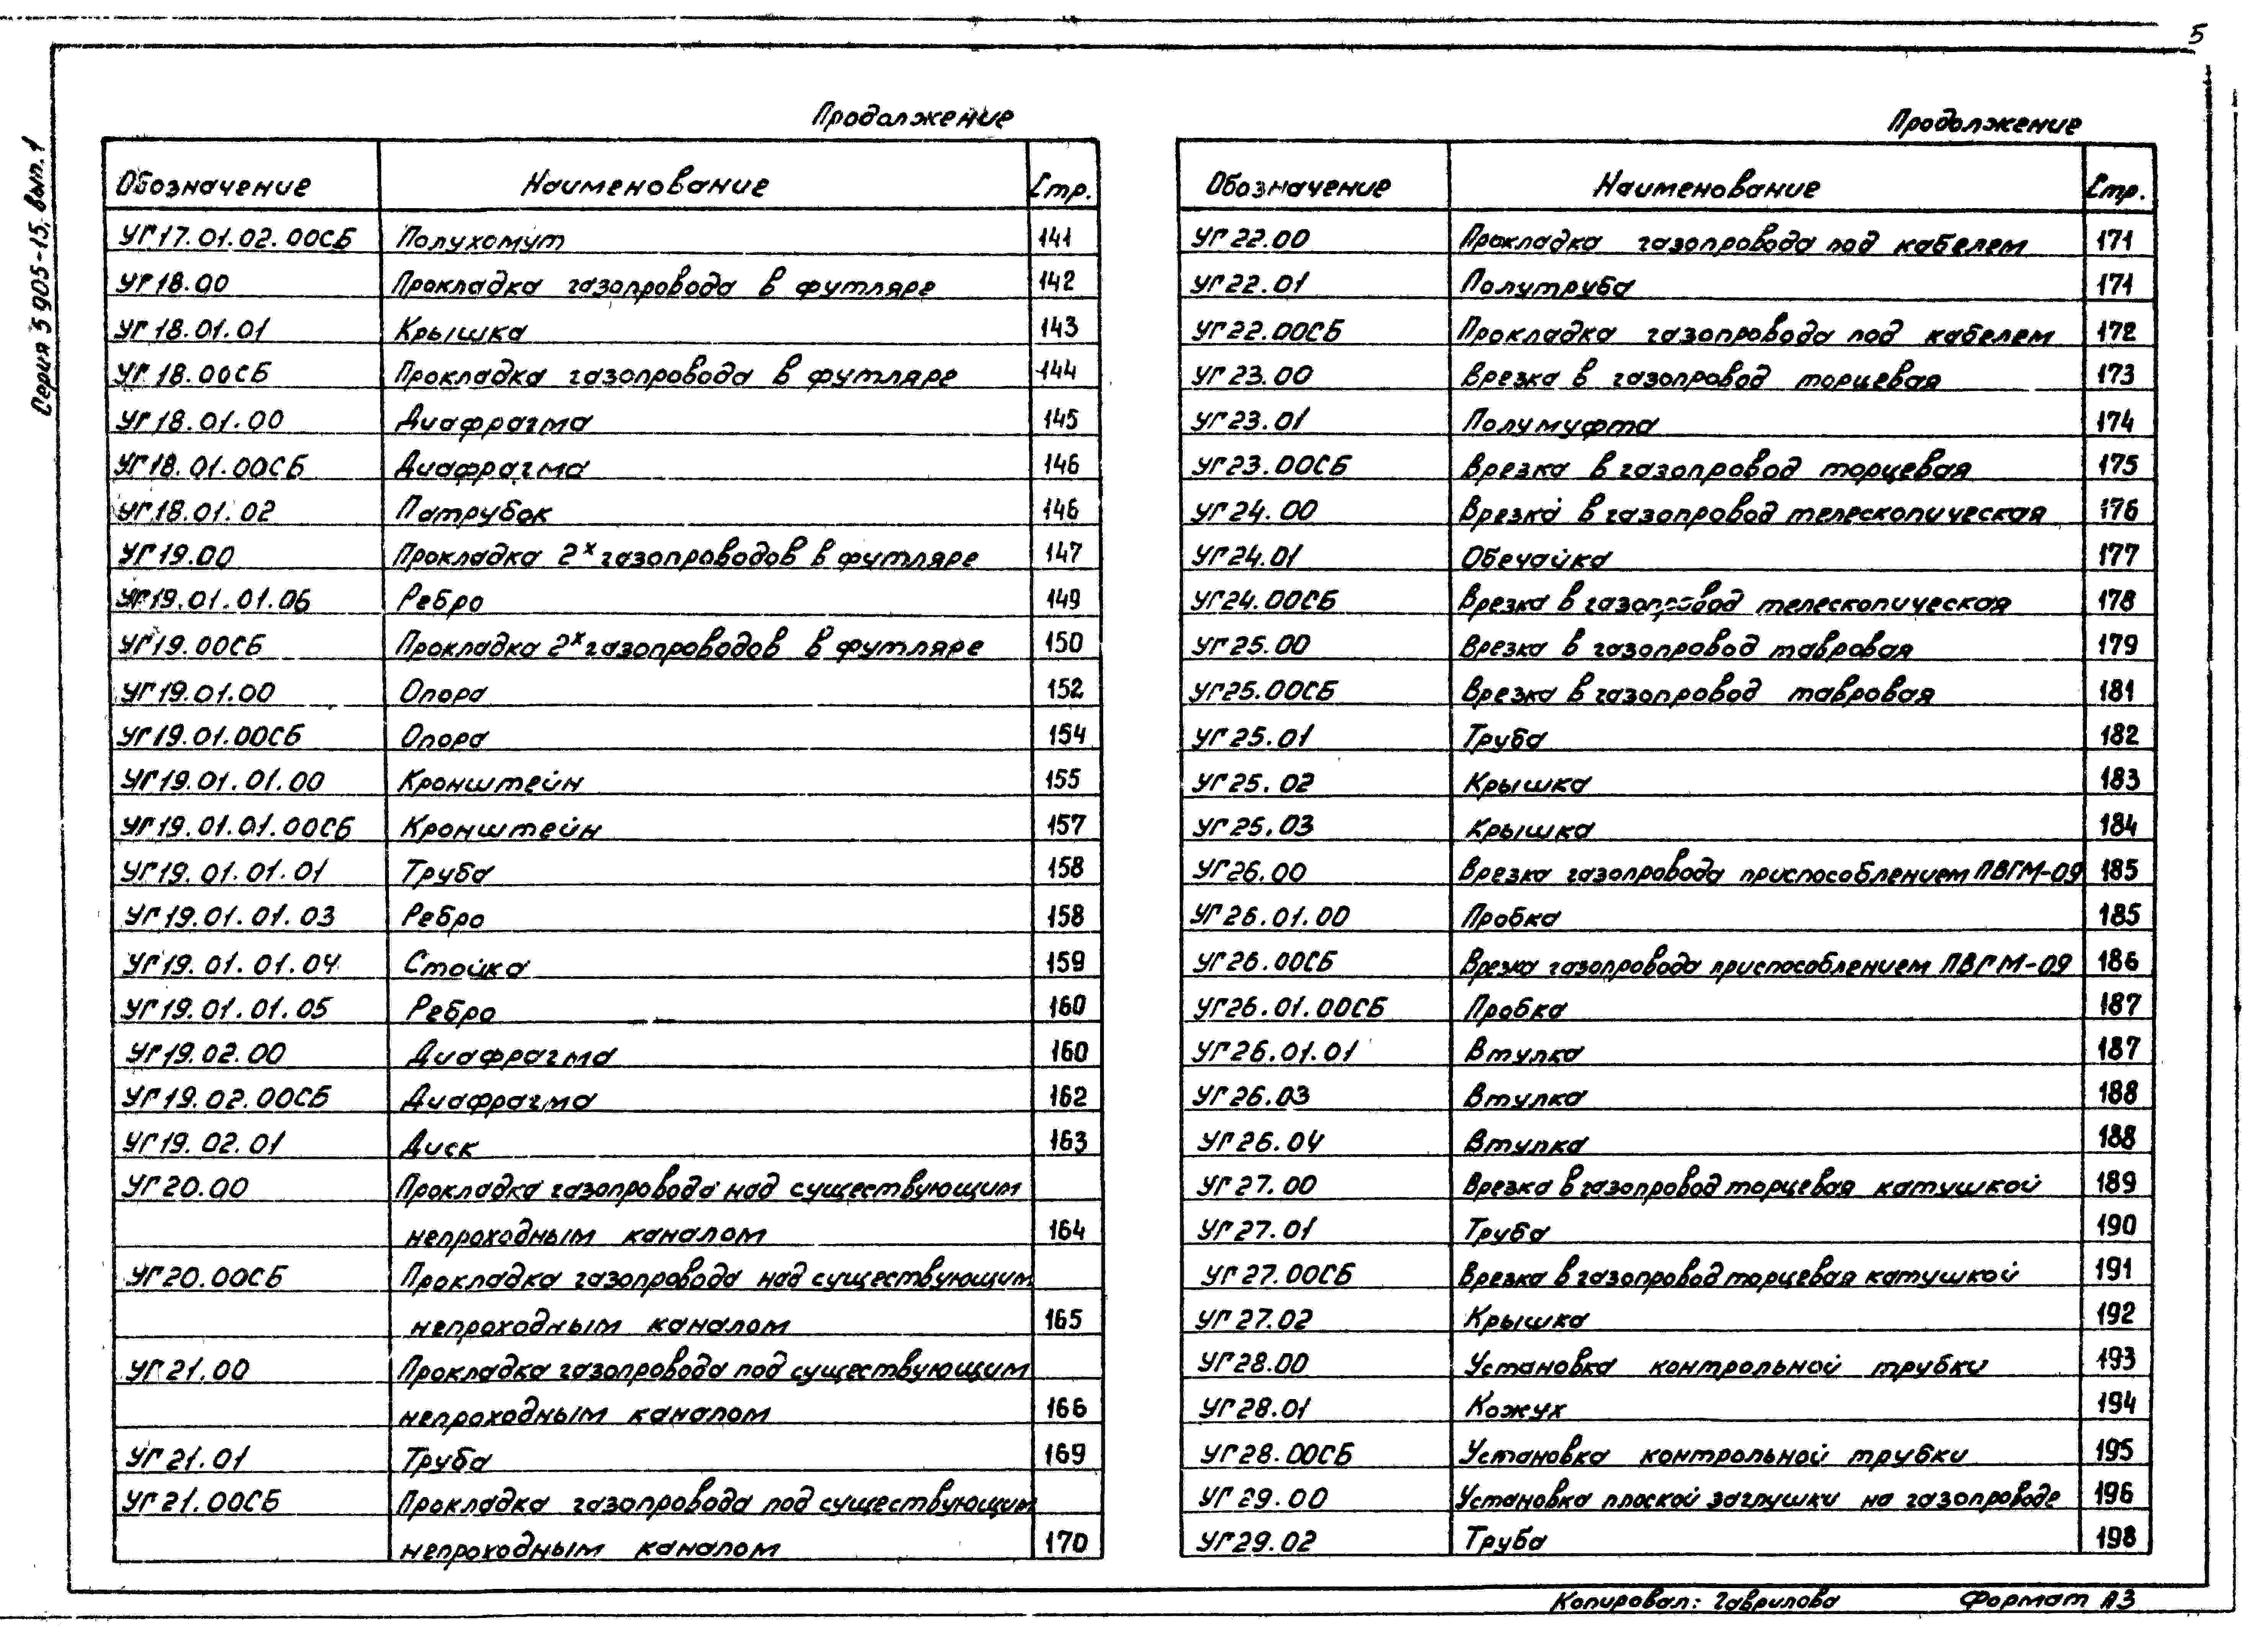 5
Серия 5 905-15, вып. 1
Продолжение
Обозначение Наименование Стр.
УГ17.01.02.00СБ Полухомут 141
УГ18.00 Прокладка газопровода в футляре 142
УГ18.01.01 Крышка 143
УГ18.00СБ Прокладка газопровода в футляре 144
УГ18.01.00 Диафрагма 145
УГ18.01.00СБ Диафрагма 146
УГ18.01.02 Патрубок 146
УГ19.00 Прокладка 2х газопроводов в футляре 147
УГ19.01.01.06 Ребро 149
УГ19.00СБ Прокладка 2х газопроводов в футляре 150
УГ19.01.00 Опора 152
УГ19.01.00СБ Опора 154
УГ19.01.01.00 Кронштейн 155
УГ19.01.01.00СБ Кронштейн 157
УГ19.01.01.01 Труба 158
УГ19.01.01.03 Ребро 158
УГ19.01.01.04 Стойка 159
УГ19.01.01.05 Ребро 160
УГ19.02.00 Диафрагма 160
УГ19.02.00СБ Диафрагма 162
УГ19.02.01 Диск 163
УГ20.00 Прокладка газопровода над существующим
непроходным каналом 164
УГ20.00СБ Прокладка газопровода над существующим
непроходным каналом 165
УГ21.00 Прокладка газопровода под существующим
непроходным каналом 166
УГ21.01 Труба 169
УГ21.00СБ Прокладка газопровода под существующим
непроходным каналом 170
Продолжение
Обозначение Наименование Стр.
УГ22.00 Прокладка газопровода под кабелем 171
УГ22.01 Полутруба 171
УГ22.00СБ Прокладка газопровода под кабелем 172
УГ23.00 Врезка в газопровод торцевая 173
УГ23.01 Полумуфта 174
УГ23.00СБ Врезка в газопровод торцевая 175
УГ24.00 Врезка в газопровод телескопическая 176
УГ24.01 Обечайка 177
УГ24.00СБ Врезка в газопровод телескопическая 178
УГ25.00 Врезка в газопровод тавровая 179
УГ25.00СБ Врезка в газопровод тавровая 181
УГ25.01 Труба 182
УГ25.02 Крышка 183
УГ25.03 Крышка 184
УГ26.00 Врезка газопровода приспособлением ПВГМ-09 185
УГ26.01.00 Пробка 185
УГ26.00СБ Врезка газопровода приспособлением ПВГМ-09 186
УГ26.01.00СБ Пробка 187
УГ26.01.01 Втулка 187
УГ26.03 Втулка 188
УГ26.04 Втулка 188
УГ27.00 Врезка в газопровод торцевая катушкой 189
УГ27.01 Труба 190
УГ27.00СБ Врезка в газопровод торцевая катушкой 191
УГ27.02 Крышка 192
УГ28.00 Установка контрольной трубки 193
УГ28.01 Кожух 194
УГ28.00СБ Установка контрольной трубки 195
УГ29.00 Установка плоской заглушки на газопроводе 196
УГ29.02 Труба 198
Копировал: Гаврилова Формат А3